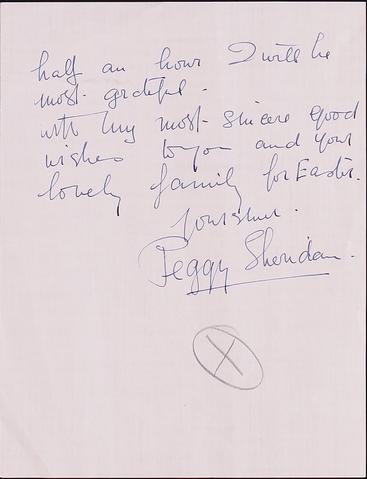 half an hour I will be
most grateful.
with my most sincere good
wishes to you and your
lovely family for Easter.
Yours sincer.
Peggy Sheridan.
X